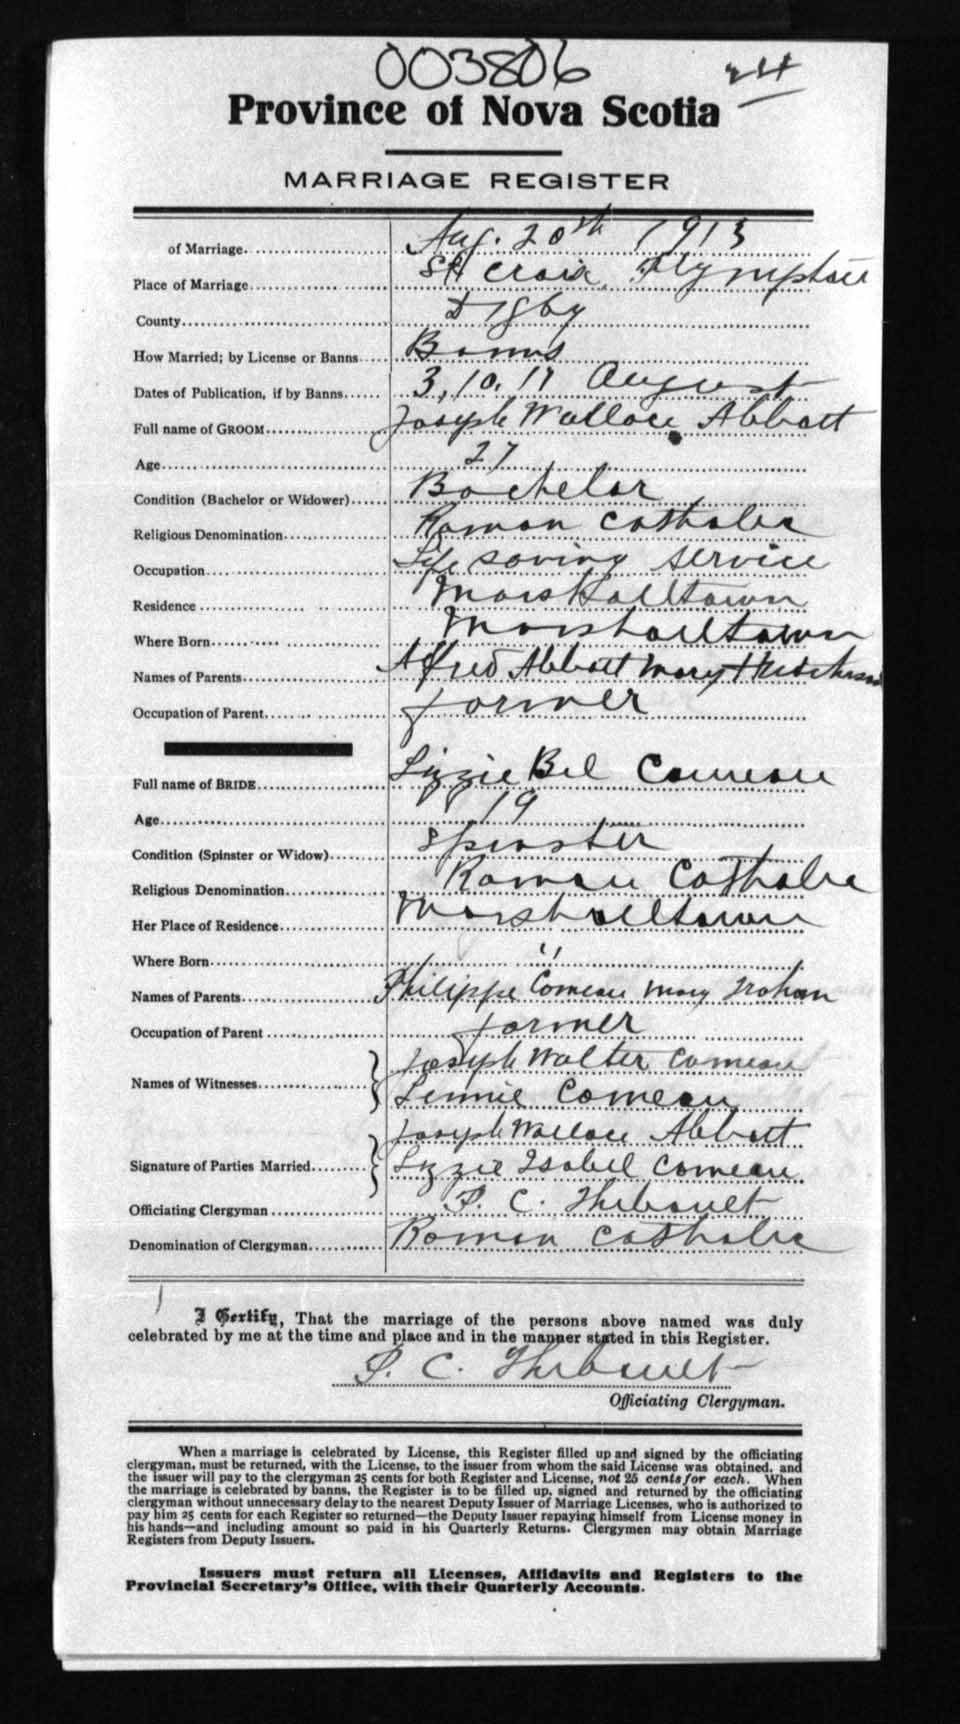 003806 24
Province of Nova Scotia
MARRIAGE REGISTER
of Marriage Aug. 20th 1913
Place of Marriage St Croix, Plympton
County Digby
How Married; by License or Banns Banns
Dates of Publication, if by Banns 3, 10, 17 August
Full name of GROOM Joseph Wallace Abbott
Age 27
Condition (Bachelor or Widower) Bachelor
Religious Denomination Roman Catholic
Occupation Life saving service
Residence Marshalltown
Where Born Marshalltown
Names of Parents Alfred Abbott Mary
Occupation of Parent farmer
Full name of BRIDE Lizzie Bel Comeau
Age 19
Condition (Spinster or Widow) Spinster
Religious Denomination Roman Catholic
Her Place of Residence Marshalltown
Where Born "
Names of Parents Philippe Comeau Mary
Occupation of Parent farmer
Names of Witnesses Joseph Walter Comeau
Lennie Comeau
Signature of Parties Married Joseph Wallace Abbott
Lizzie Isabel Comeau
Officiating Clergyman P. C. Thibault
Denomination of Clergyman Roman Catholic
I Certify, That the marriage of the persons above named was duly
celebrated by me at the time and place and in the manner stated in this Register.
P. C. Thibault
Officiating Clergyman.
When a marriage is celebrated by License, this Register filled up and signed by the officiating
clergyman, must be returned, with the License, to the issuer from whom the said License was obtained, and
the issuer will pay to the clergyman 25 cents for both Register and License, not 25 cents for each. When
the marriage is celebrated by banns, the Register is to be filled up, signed and returned by the officiating
clergyman without unnecessary delay to the nearest Deputy Issuer of Marriage Licenses, who is authorized to
pay him 25 cents for each Register so returned—the Deputy Issuer repaying himself from License money in
his hands—and including amount so paid in his Quarterly Returns. Clergymen may obtain Marriage
Registers from Deputy Issuers.
Issuers must return all Licenses, Affidavits and Registers to the
Provincial Secretary's Office, with their Quarterly Accounts.